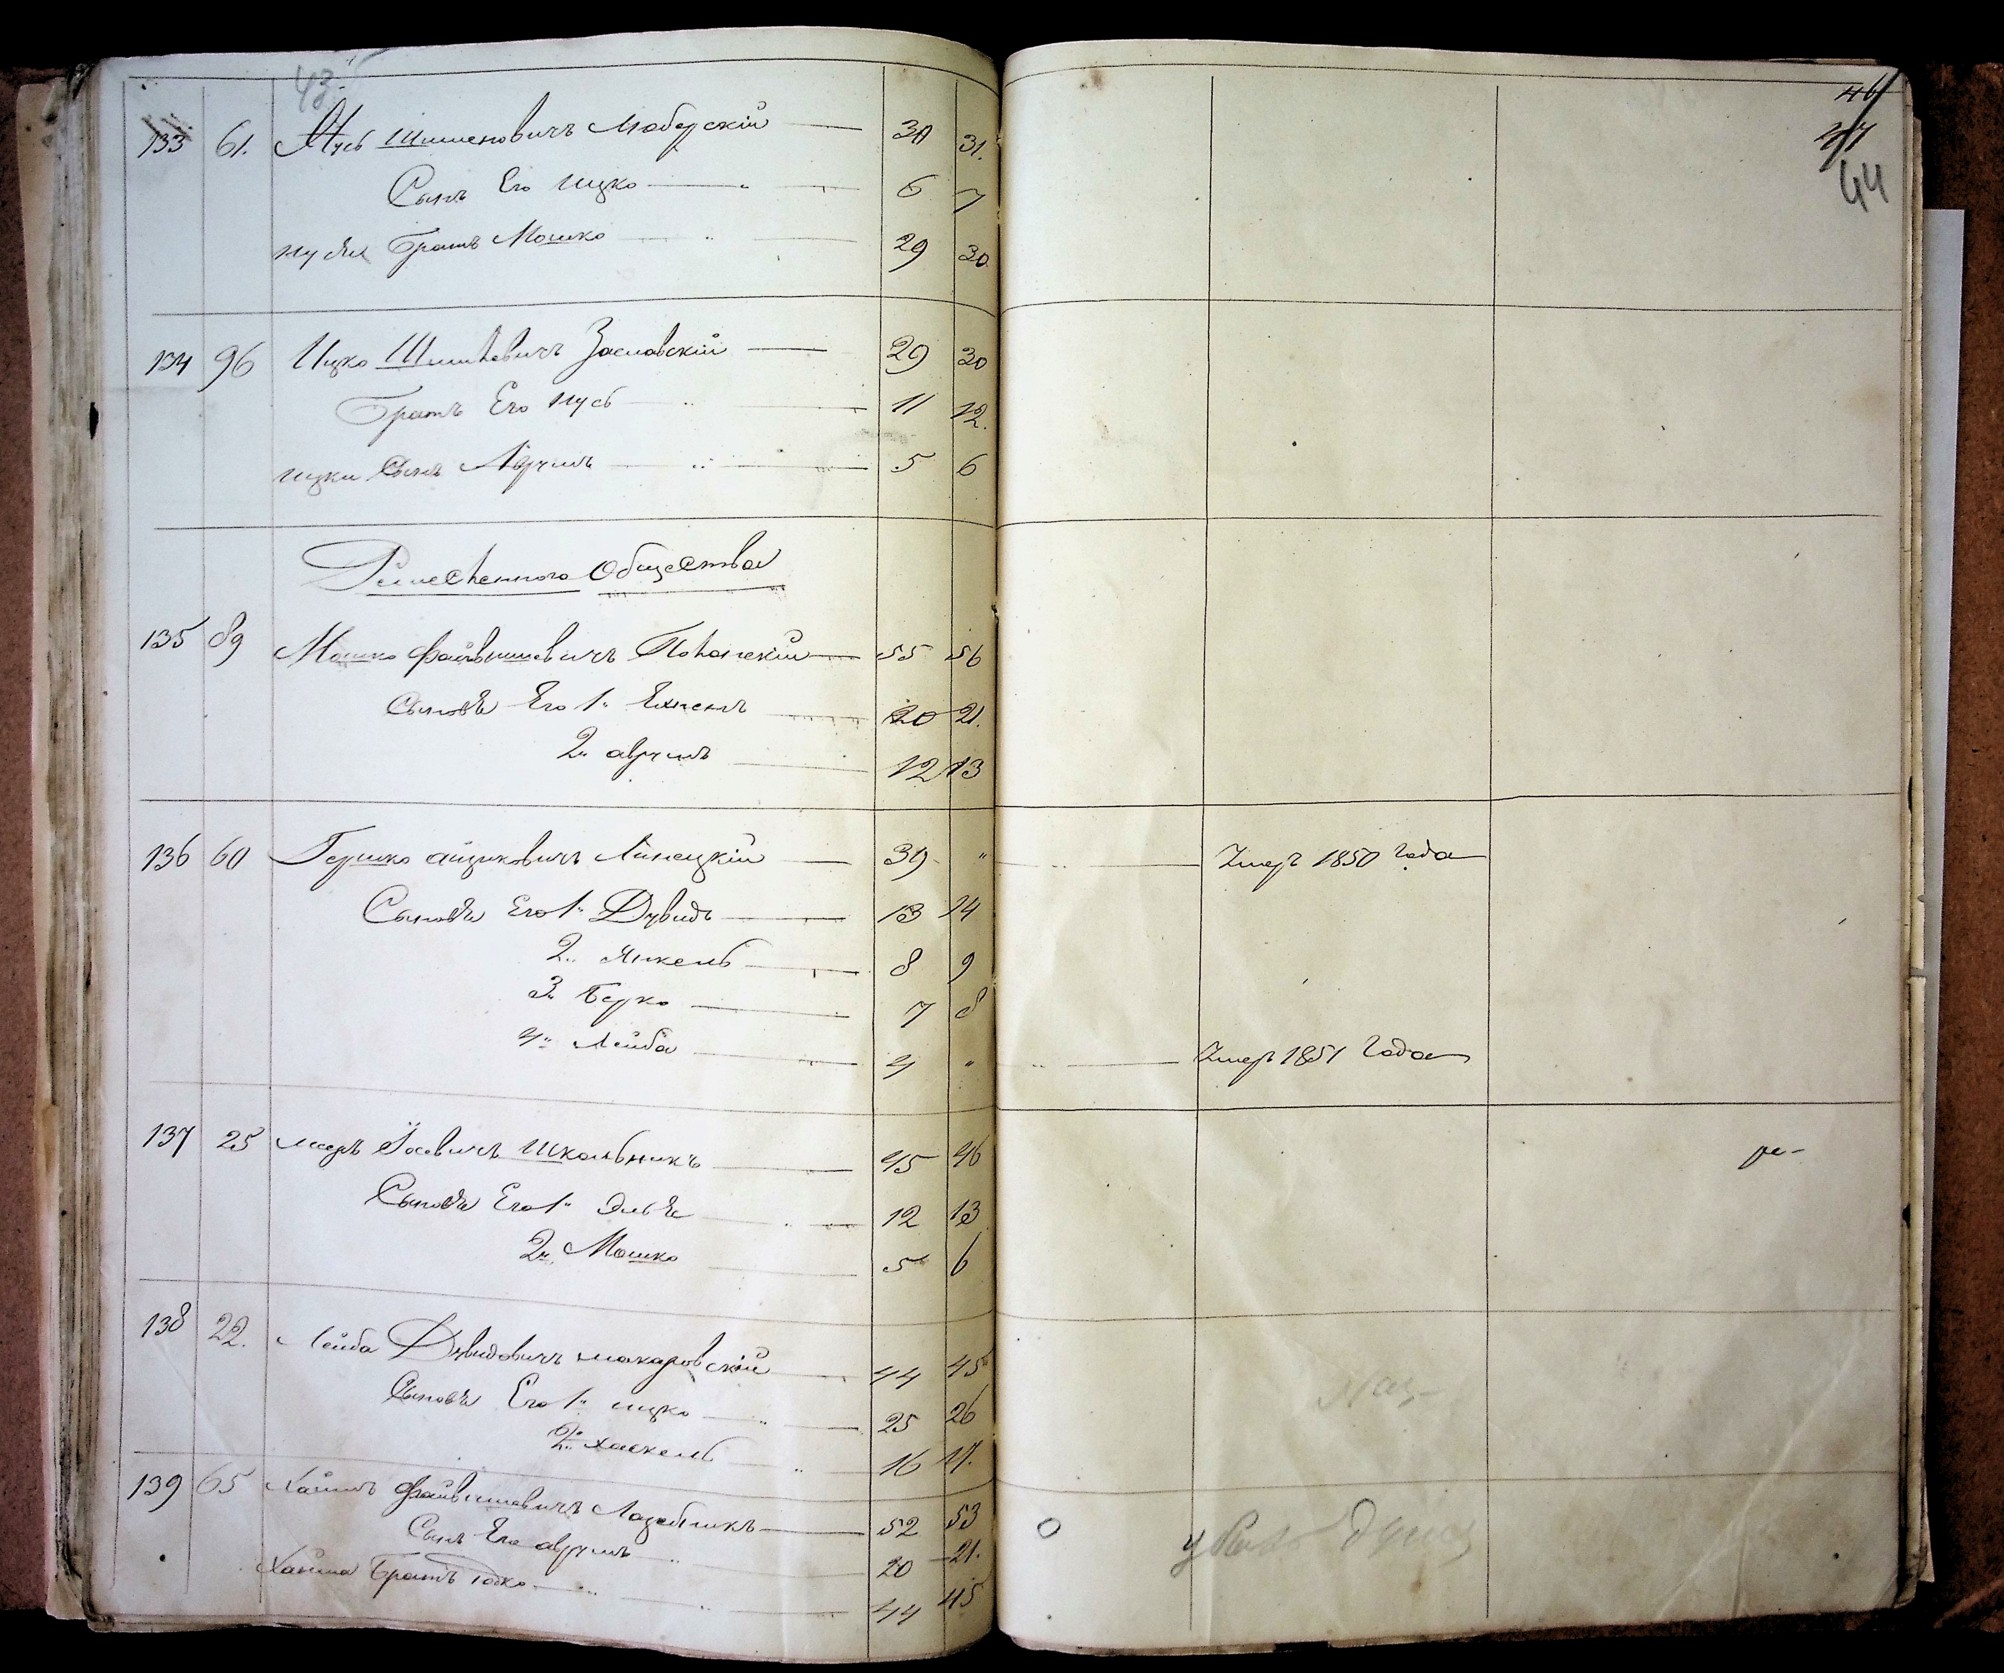 43
133 61. Нусь Шлиомовичъ Любарскій 30 31.
Сынъ Его Ицко 6 7
Нуся Братъ Мошко 29 30
134 96 Ицко Шмилевичъ Заславскій 29 30
Братъ Его Нусь 11 12.
Ицки Сынъ Аврумъ 5 6
Ремесленного Общества
135 89 Мошко Файвишевичъ 55 56
Сыновья Его 1й 20 21.
2й аврумъ 12 13
136 60 Гершко айзиковичъ Линецкій 39 "
Сыновья Его 1й Дувидъ 13 14
2й Янкель 8 9
3й Берко 7 8
4й Лейба 4 "
137 25 мееръ Іосевичъ Школьникъ 45 46
Сыновья Его 1й Эля 12 13
2й Мошко 5 6
138 22. Лейба Дувидовичъ макаровскій 44 45
Сыновья Его 1й ицко 25 26
2й хаскель 16 17.
139 65 Хаимъ Файвишевичъ Лазебникъ 52 53
Сынъ Его аврумъ 20 21.
Хаима Братъ 44 45
46
47
44
Умеръ 1850 Года
Умеръ 1851 Года
ре-